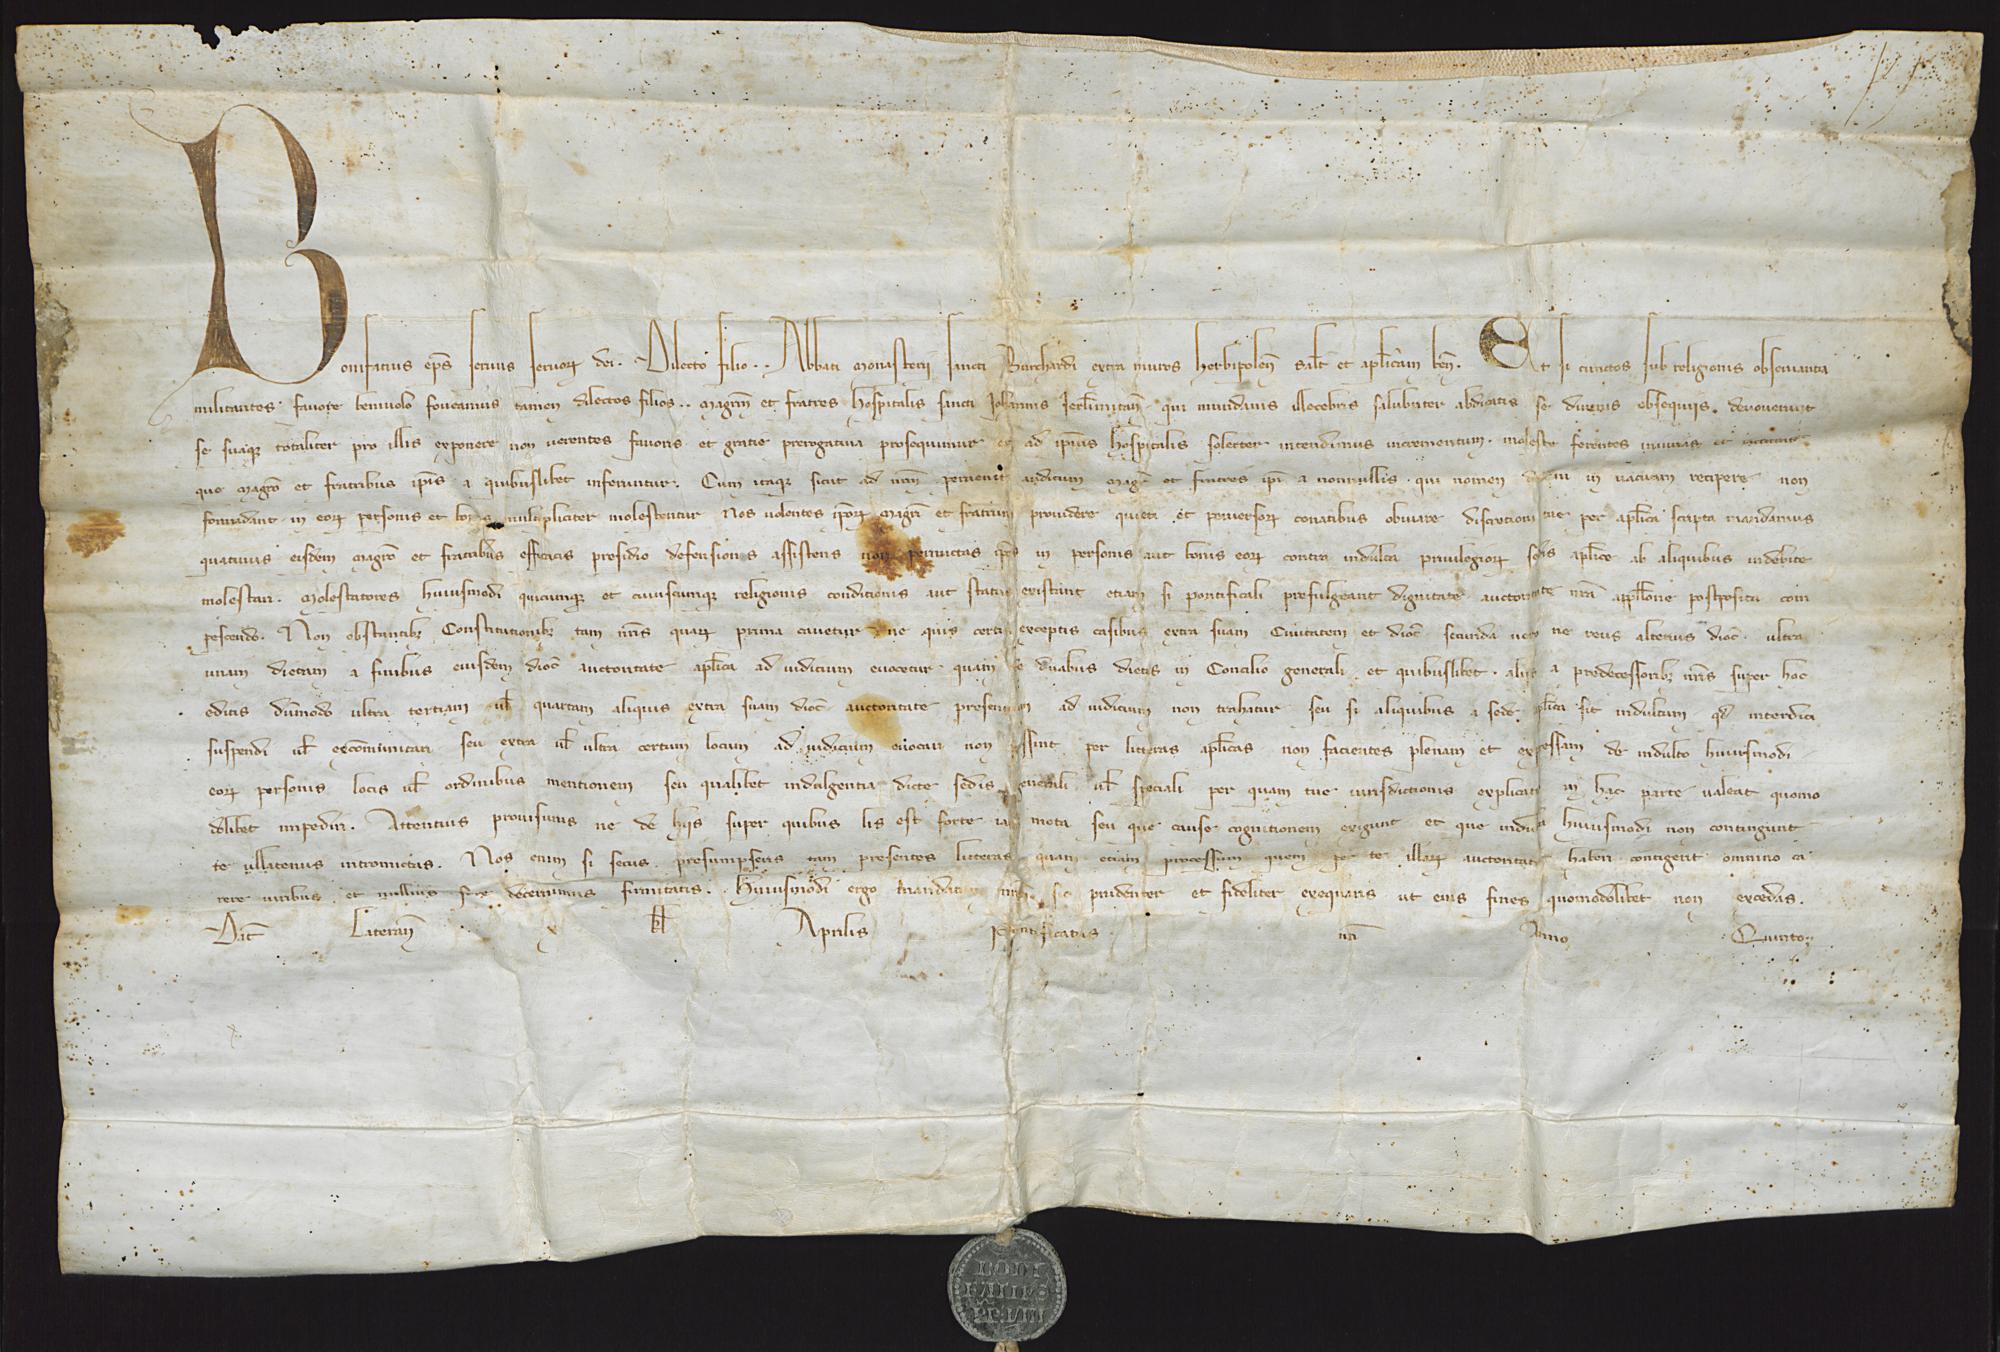 Bonifatius eps seruus seruoꝝ dei. Dilecto filio . . Abbati Monasterii sancti Burchardi extra muros Herbipolen̄ Salt̄ et aplicam ben̄. Et si cunctos sub religionis obseruantia
militantes fauore beniuolo foueamus tamen dilectos filios . . Magrm̄ et fratres Hospitalis sancti Johannis Jerlimitan̄ qui mundanis illecebris salubriter abdicatis se diuinis obsequiis deuouerunt
se suaqꝫ totaliter pro illis exponere non uerentes fauoris et gratie prerogatiua prosequimur et ad ipsius Hospitalis solerter intendimus incrementum moleste ferentes iniurias et
que Magro et fratribus ipis a quibuslibet inferuntur. Cum itaqꝫ sicut ad nrm̄ peruenit auditum Magr̄ et fratres ipi a nonnullis qui nomen in uacuum recipere non
formidant in eoꝝ personis et bonis multipliciter molestentur Nos uolentes ipoꝝ Magri et fratrum prouidere quieti et peruersoꝝ conatibus obuiare discretioni tue per aplica scripta mandamus
quatinus eisdem Magro et fratribus efficacis presidio defensionis assistens non permittas ipos in personis aut bonis eoꝝ contra indulta priuilegioꝝ sedis aplice ab aliquibus indebite
molestari. Molestatores huiusmodi quicumqꝫ et cuiuscumqꝫ religionis conditionis aut status existant etiam si pontificali prefulgeant dignitate auctoritate nra appllone postposita com
pescendo. Non obstantibꝫ Constitutionibꝫ tam nris quaꝝ prima cauetur ne quis certis exceptis casibus extra suam Ciuitatem et dioc̄ secunda uero ne reus alterius dioc̄ ultra
unam dietam a finibus eiusdem dioc̄ auctoritate aplica ad iudicium euocetur quam de duabus dietis in Concilio generali et quibuslibet aliis a predecessoribꝫ nris super hoc
editis dummodo ultra tertiam ul̄ quartam aliquis extra suam dioc̄ auctoritate presentium ad iudicium non trahatur seu si aliquibus a sede aplica sit indultum qd̄ interdici
suspendi ul̄ excommunicari seu extra ul̄ ultra certum locum ad iudicium euocari non possint per litteras aplicas non facientes plenam et expressam de indulto huiusmodi
eoꝝ personis locis ul̄ ordinibus mentionem seu qualibet indulgentia dicte sedis generali ul̄ speciali per quam tue iurisdictionis explicatio in hac parte ualeat quomo
dolibet impediri. Attentius prouisurus ne de hijs super quibus lis est forte iam mota seu que cause cognitionem exigunt et que indulta huiusmodi non contingunt
te ullatenus intromittas. Nos enim si secus presumpseris tam presentes litteras quam etiam processum quem per te illaꝝ auctoritate haberi contigerit omnino ca
rere uiribus et nullius fore decernimus firmitatis. Huiusmodi ergo mandatum nrm̄ sic prudenter et fideliter exequaris ut eius fines quomodolibet non excedas.
Dat̄ Lateran̄ x kl̄ Aprilis Pontificatus nri Anno Quinto
BONI
FATIUS
PP VIIII